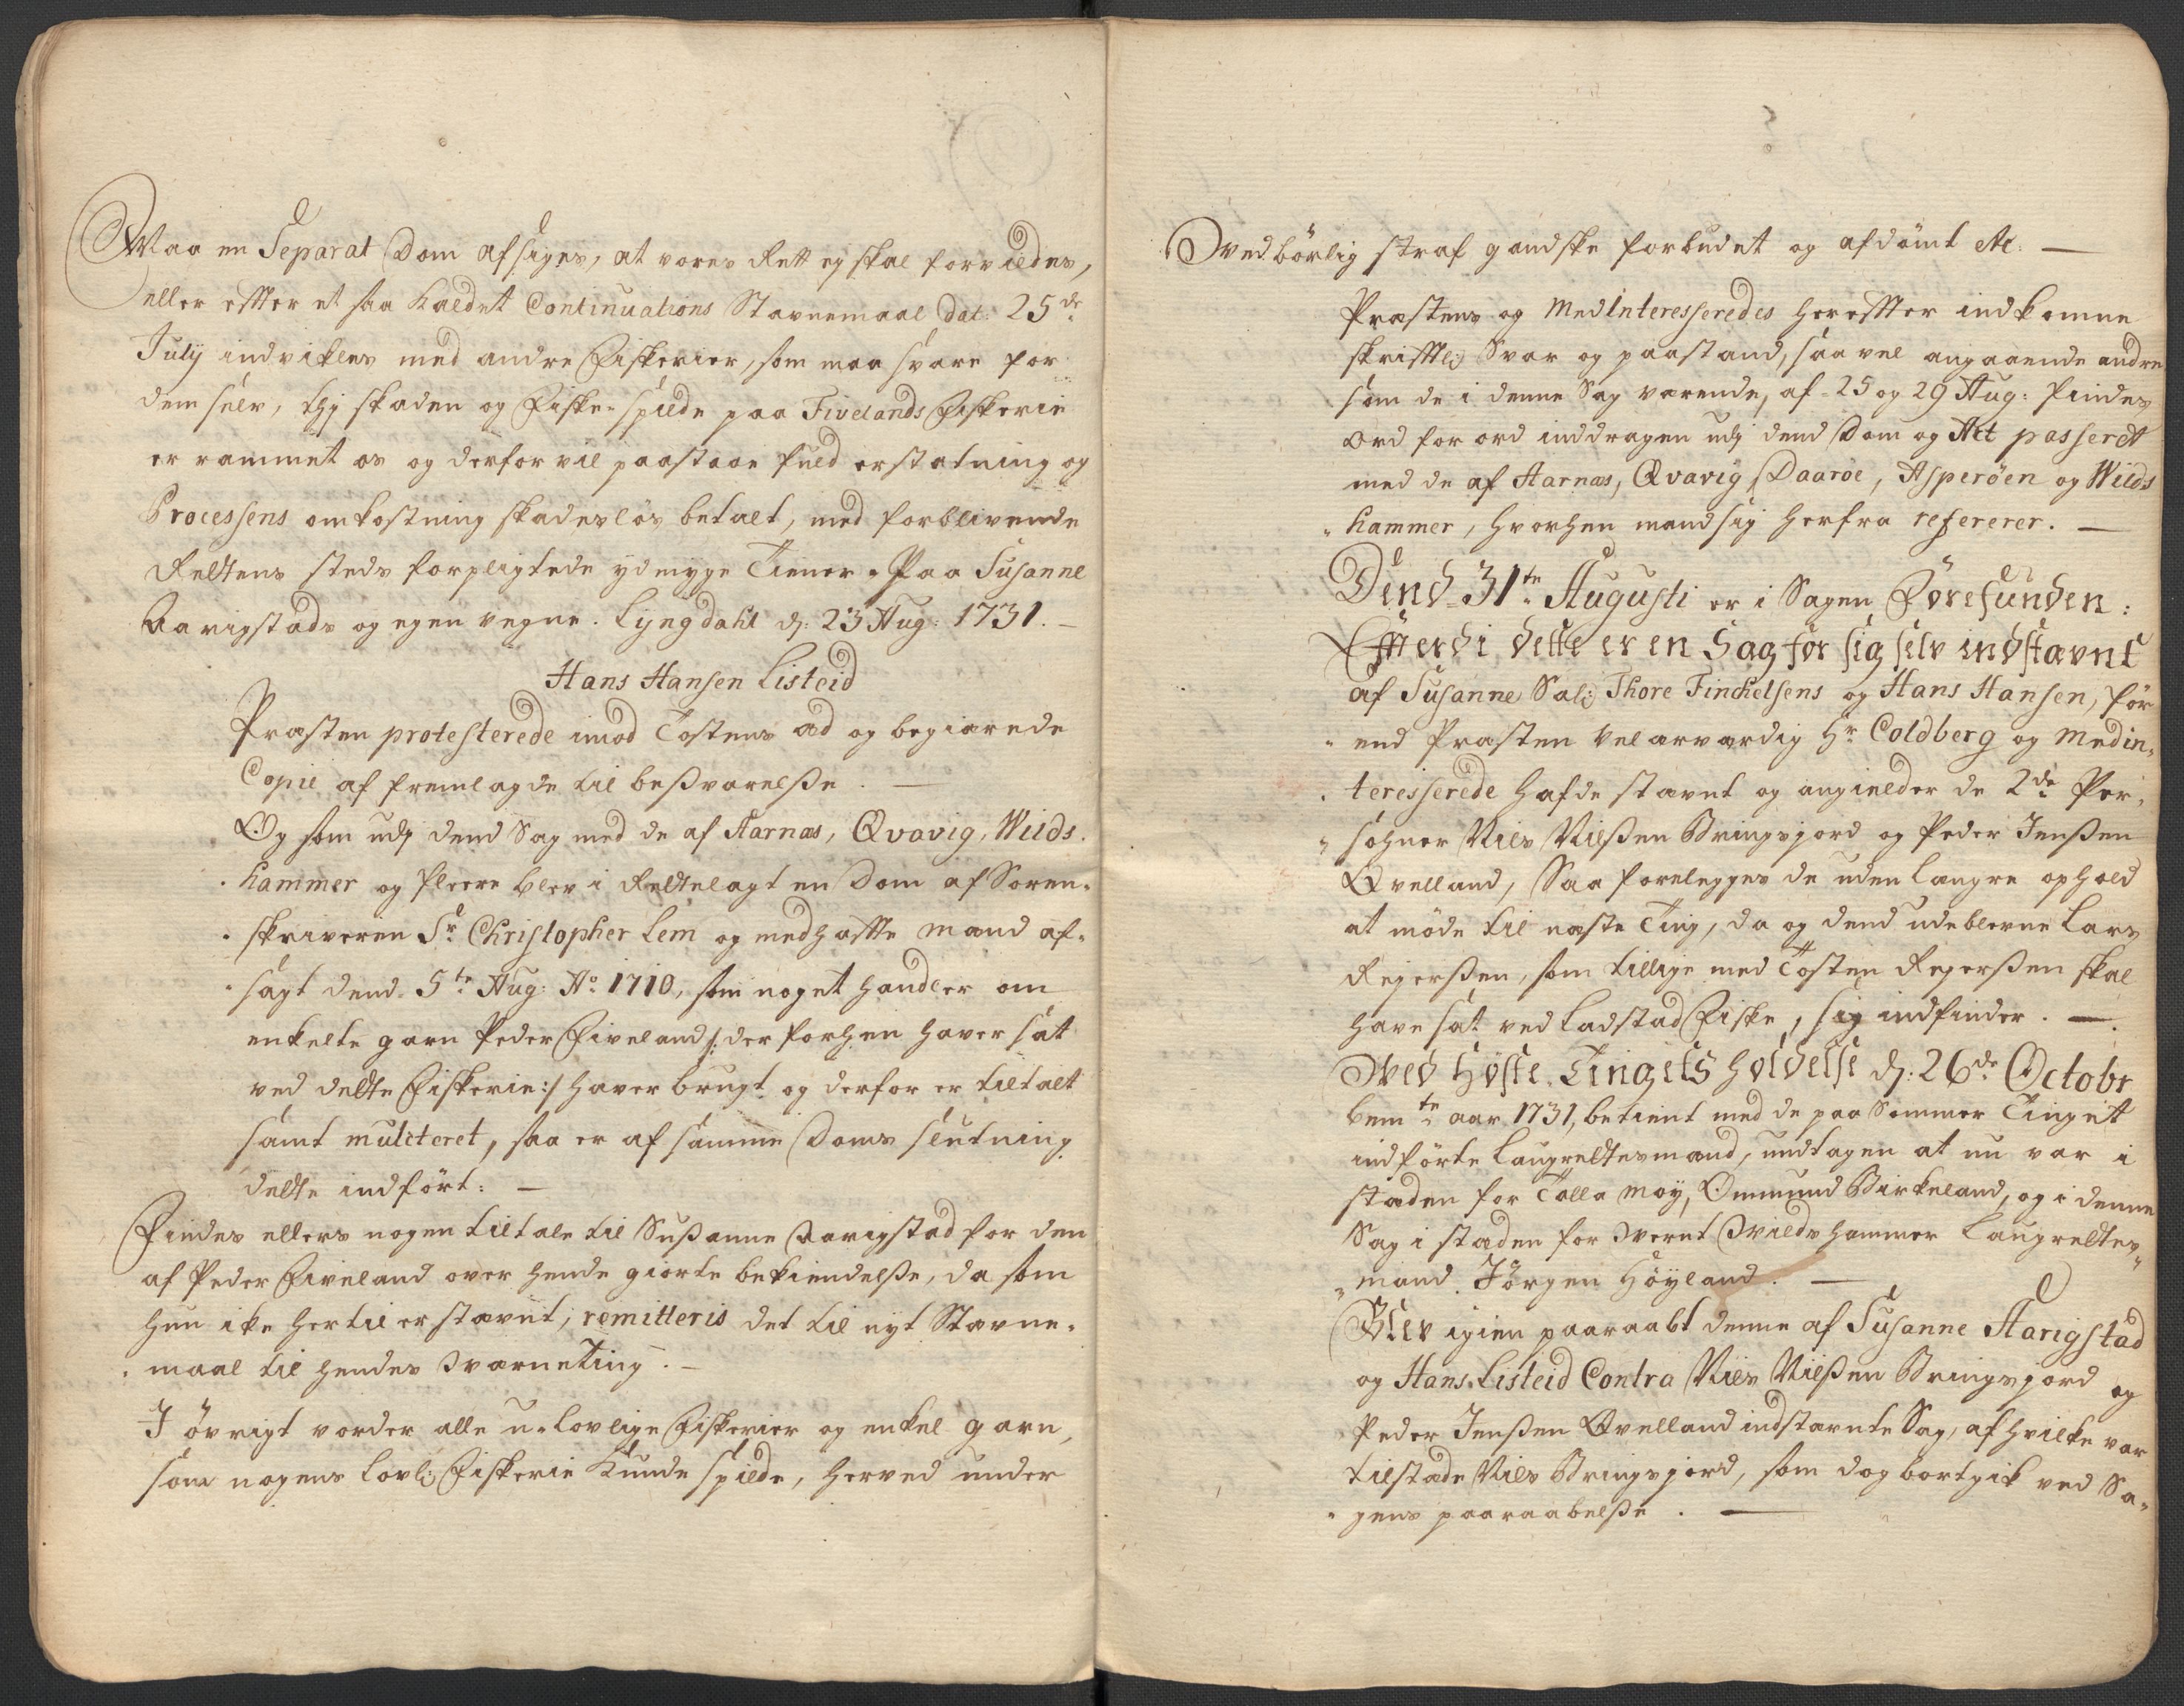 Maa en Separat Dom afsiges, at vores Rett ej skal forvildes,
eller effter et saa kaldet Continuations Stævnemaal dat: 25de
July indvikles med andre Fiskerier, som maa svare for
dem selv, thj skaden og Fiske-spilde paa Fivelands Fiskerie
er rammet os og derfor vil paastaae fuld erstatning og
Processens omkostning skadesløs betalt, med forblivende
Rettens steds forpligtede ydmyge Tiener. Paa Susanne
Aarigstads og egen vegne. Lyngdahl d: 23 Aug: 1731. –
Hans Hansen Listeid
Præsten protesterede imod Tostens ed og begiærede
Copie af fremlagde til beßvarelße. —
Og som udj dend Sag med de af Aarnæs, Qvavig, Wilds-
hammer og fleere blev i Rettelagt en Dom af Soren-
skriveren Sr Christopher Lem og medhaffte mænd af-
sagt dend 5te Aug: Ao 1710, som noget handler om
enkelte garn Peder Fiveland /: der forhen haver sat
ved dette Fiskerie :/ haver brugt og derfor er tiltalt
samt mulcteret, saa er af samme Doms slutning
dette indført: —
Findes ellers nogen tiltale til Sußanne Aarigstad for den
af Peder Fiveland over hende giorte bekiendelße, da som
hun ike hertil er stævnt, remitteris det til nyt Stævne-
maal til hendes Værneting. –
J øvrigt vorder alle u-lovlige Fiskerier og enkel garn,
som nogens lovl: Fiskerie kunde spilde, herved under
Vedbørlig straf gandske forbudet og afdømt etc: —
Præstens og Medinteresseredes hereffter indkomne
skrifftl: Svar og paastand, saa vel angaaende andre
som de i denne Sag værende, af 25 og 29 Aug: findes
ord for ord inddragen udj dend Dom og Act passeret
med de af Aarnæs, Qvavig, Daarøe, Asperøen og Wilds
hammer, hvorhen mand sig herfra refererer. —
Dend 31te Augusti er i Sagen Forefunden:
Effterdi dette er en Sag for sig selv indstævnt
af Susanne Sal: Thore Finchelsens og Hans Hansen, før
end Præsten Velærværdig Hr Coldberg og Medin-
teresserede hafde stævnt og angielder de 2de Per-
sohner Niels Nielßen Bringsjord og Peder Jenßen
Qvelland, Saa forelegges de uden længre ophold
at møde til næste Ting, da og dend udeblevne Lars
Rejerßen, som tillige med Tosten Rejerßen skal
have sat ved Ladstad Fiske, sig indfinder. —
Ved Høste-Tingets holdelse d: 26de Octobr
bemte aar 1731, betient med de paa Sommer Tinget
indførte Laugrettesmænd, undtagen at nu var i
staden for Tolla Moy, Ommund Birkeland, og i denne
Sag i staden for Svernt Svildshammer Laugrettes-
mand Jørgen Høyland. —
Blev igien paaraabt denne af Susanne Aarigstad
og Hans Listeid Contra Niels Nielßen Bringsjord og
Peder Jenßen Qvelland indstævnte Sag, af hvilke var
tilstæde Niels Bringsjord, som dog bortgik ved Sa-
gens paaraabelße. —